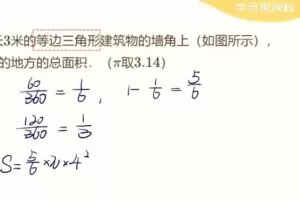 学而思网校
长3米的等边三角形建筑物的墙角上（如图所示），
的地方的总面积．（π取3.14）
60/360 = 1/6, 1-1/6 = 5/6
120/360 = 1/3
S = 5/6 ×π×4²